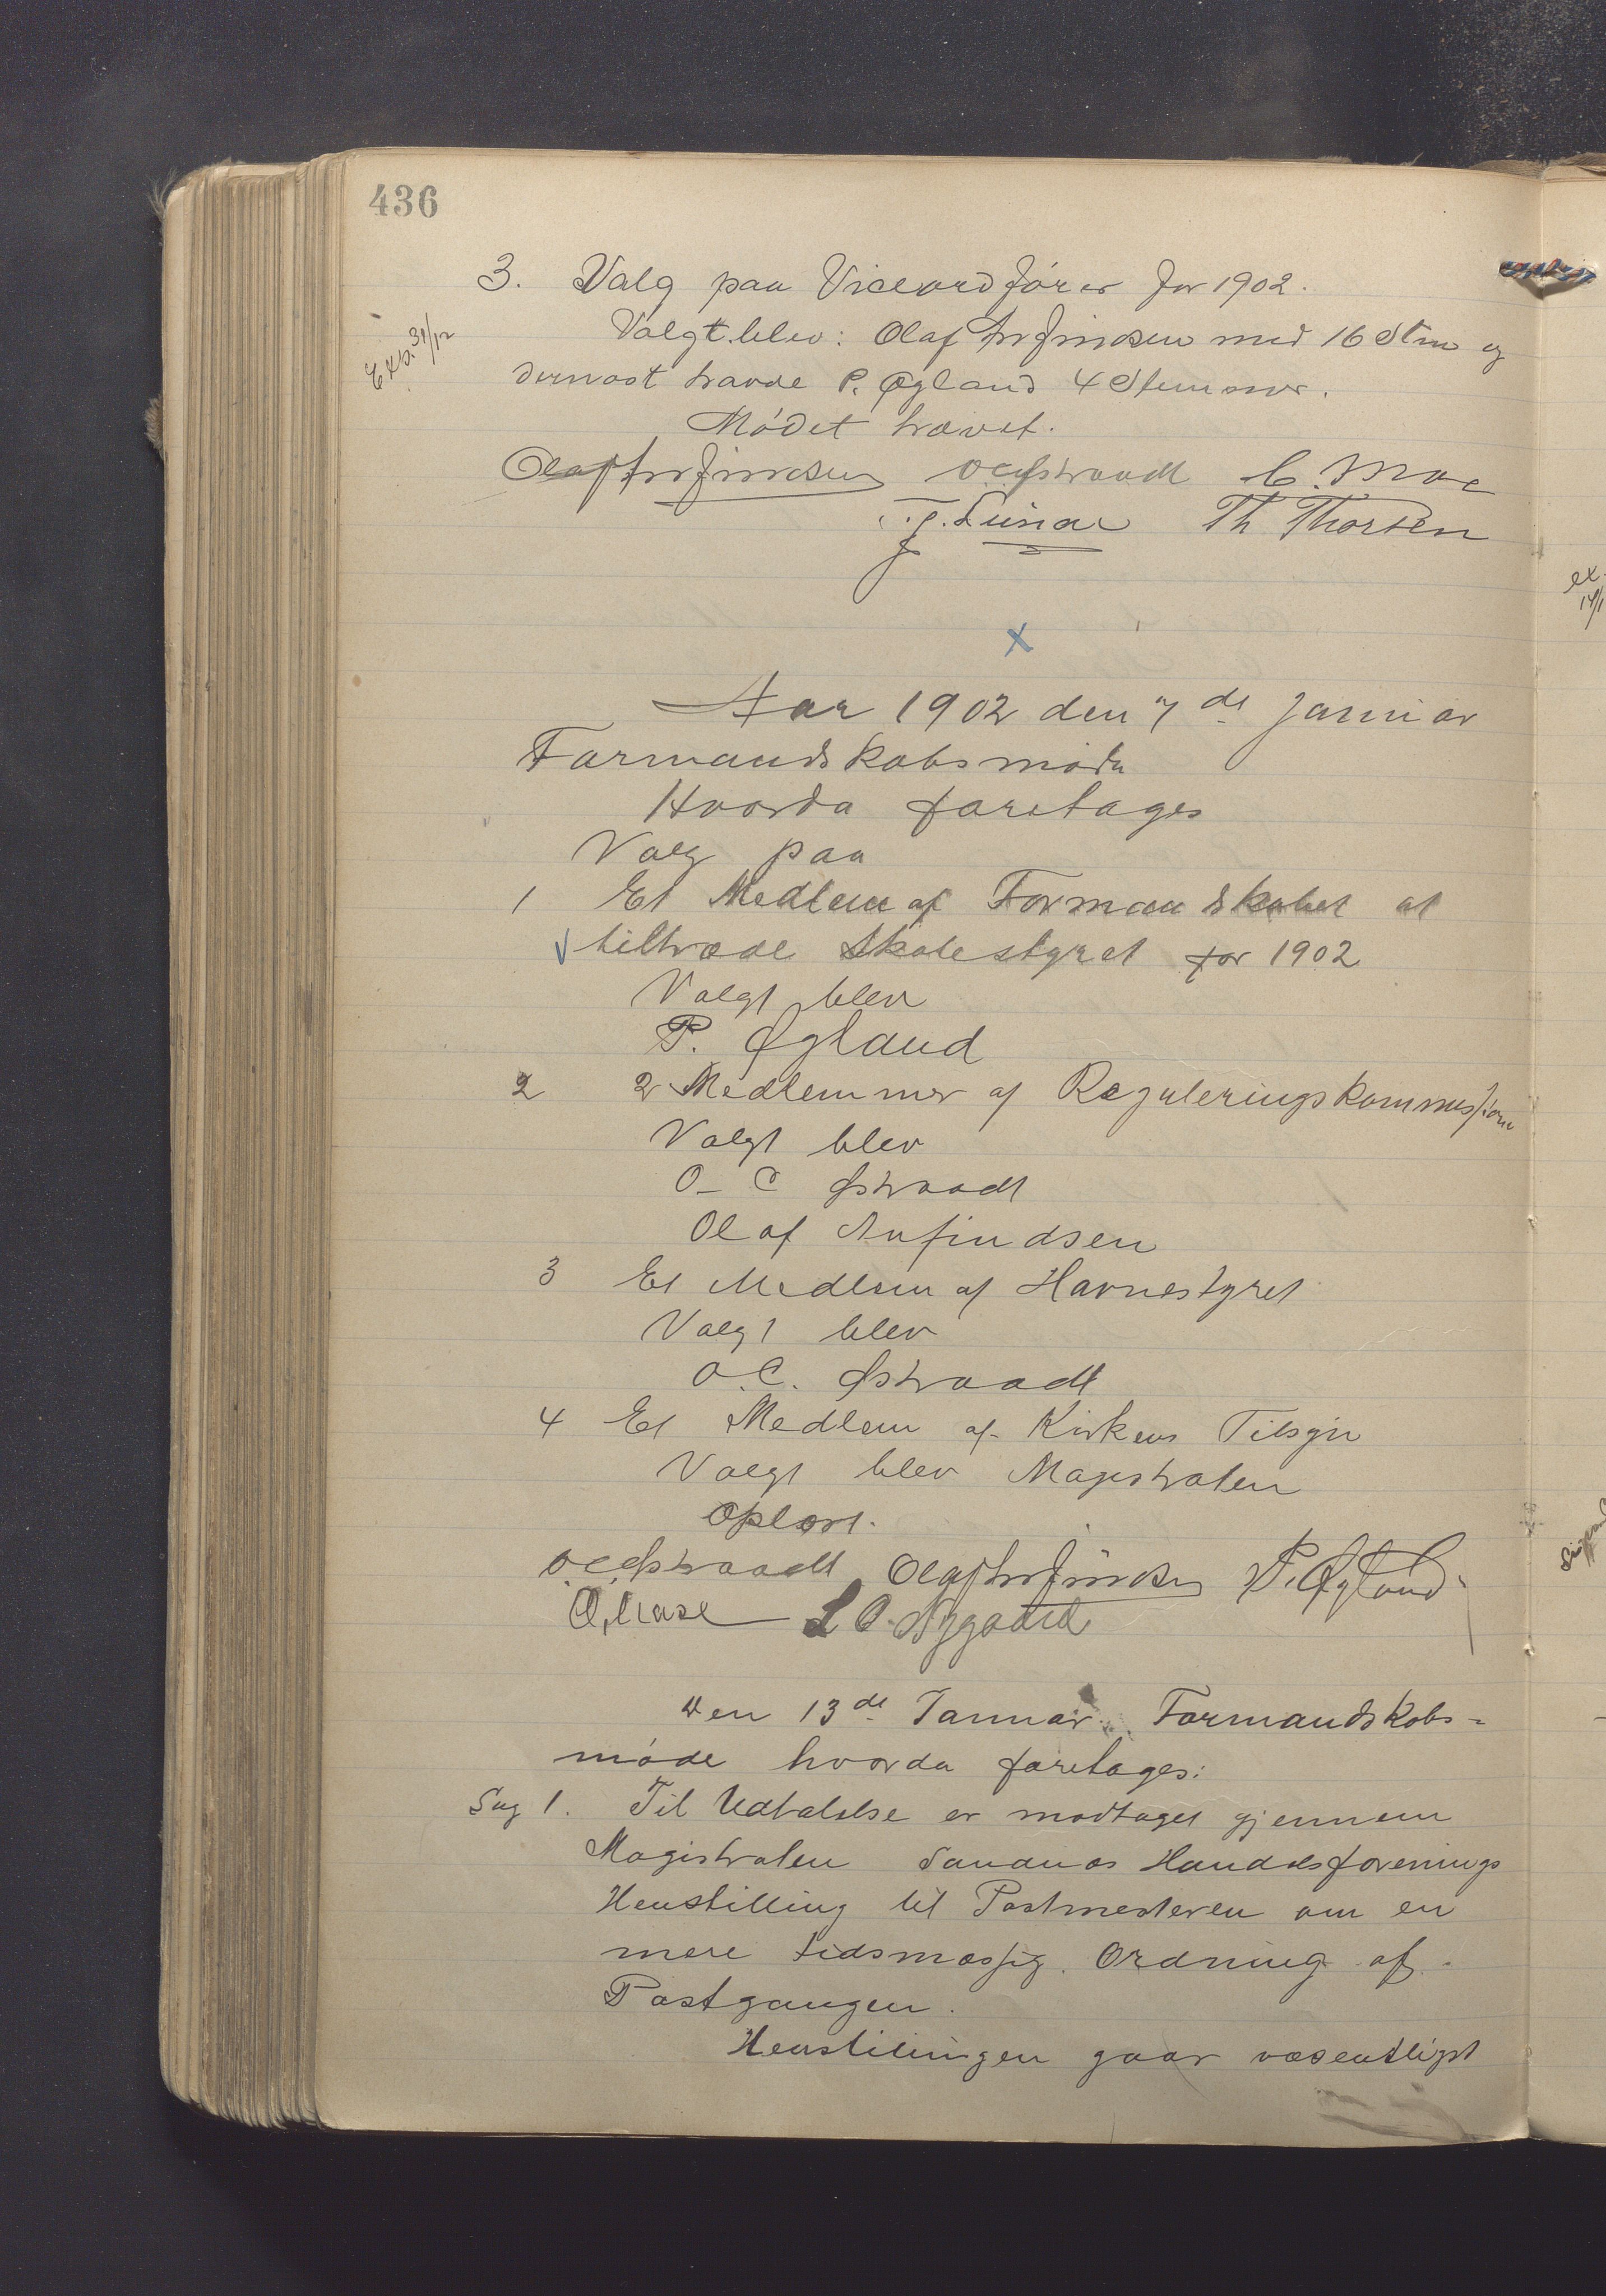 436
3. Valg paa Viceordfører for 1902.
Exp. 31/12
Valgt blev: Olaf Arfindsen med 16 Stm og
dernæst havde P. Øgland 4 Stemmer.
Mødet hævet.
Olaf Arfindsen OCØstraadt C. Moe
Th Thorsen
x
Aar 1902 den 7de Januar
Formandskabsmøde
Hvorda foretages
Valg paa
1 Et Medlem af Formanskabet at
tiltræde Skolestyret for 1902
Valgt blev
P. Øgland
2 2 Medlemmer af Reguleringskommissionen
Valgt blev
O-C Østraadt
Olaf Arfindsen
3 Et Medlem af Havnestyret
Valgt blev
O.C. Østraadt
4 Et Medlem af Kirkens Tilsyn
Valgt blev Magistraten
Oplæst.
OCØstraadt Olaf Arfindsen P. Øgland
L O. Nygaard
Den 13de Januar. Formandskabs-
møde hvorda foretages:
Sag 1. Til Udtalelse er modtaget gjennem
Magistraten Sandnæs Handelsforenings
Henstilling til Postmesteren om en
mere tidsmæssig Ordning af
Postgangen.
Henstillingen gaar væsentligst
ex.
14/1